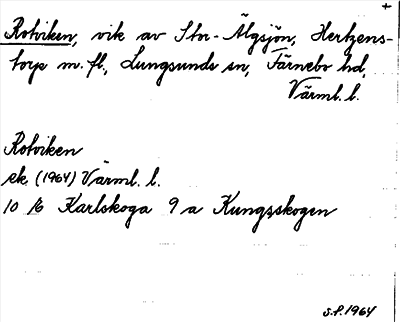 +
Rotviken, vik av Stor-Älgsjön, Hertzens-
torp m. fl., Lungsunds sn, Färnebo hd,
Värml. l.
Rotviken
ek. (1964) Värml. l.
10 16 Karlskoga 9 a Kungsskogen
S.P. 1964